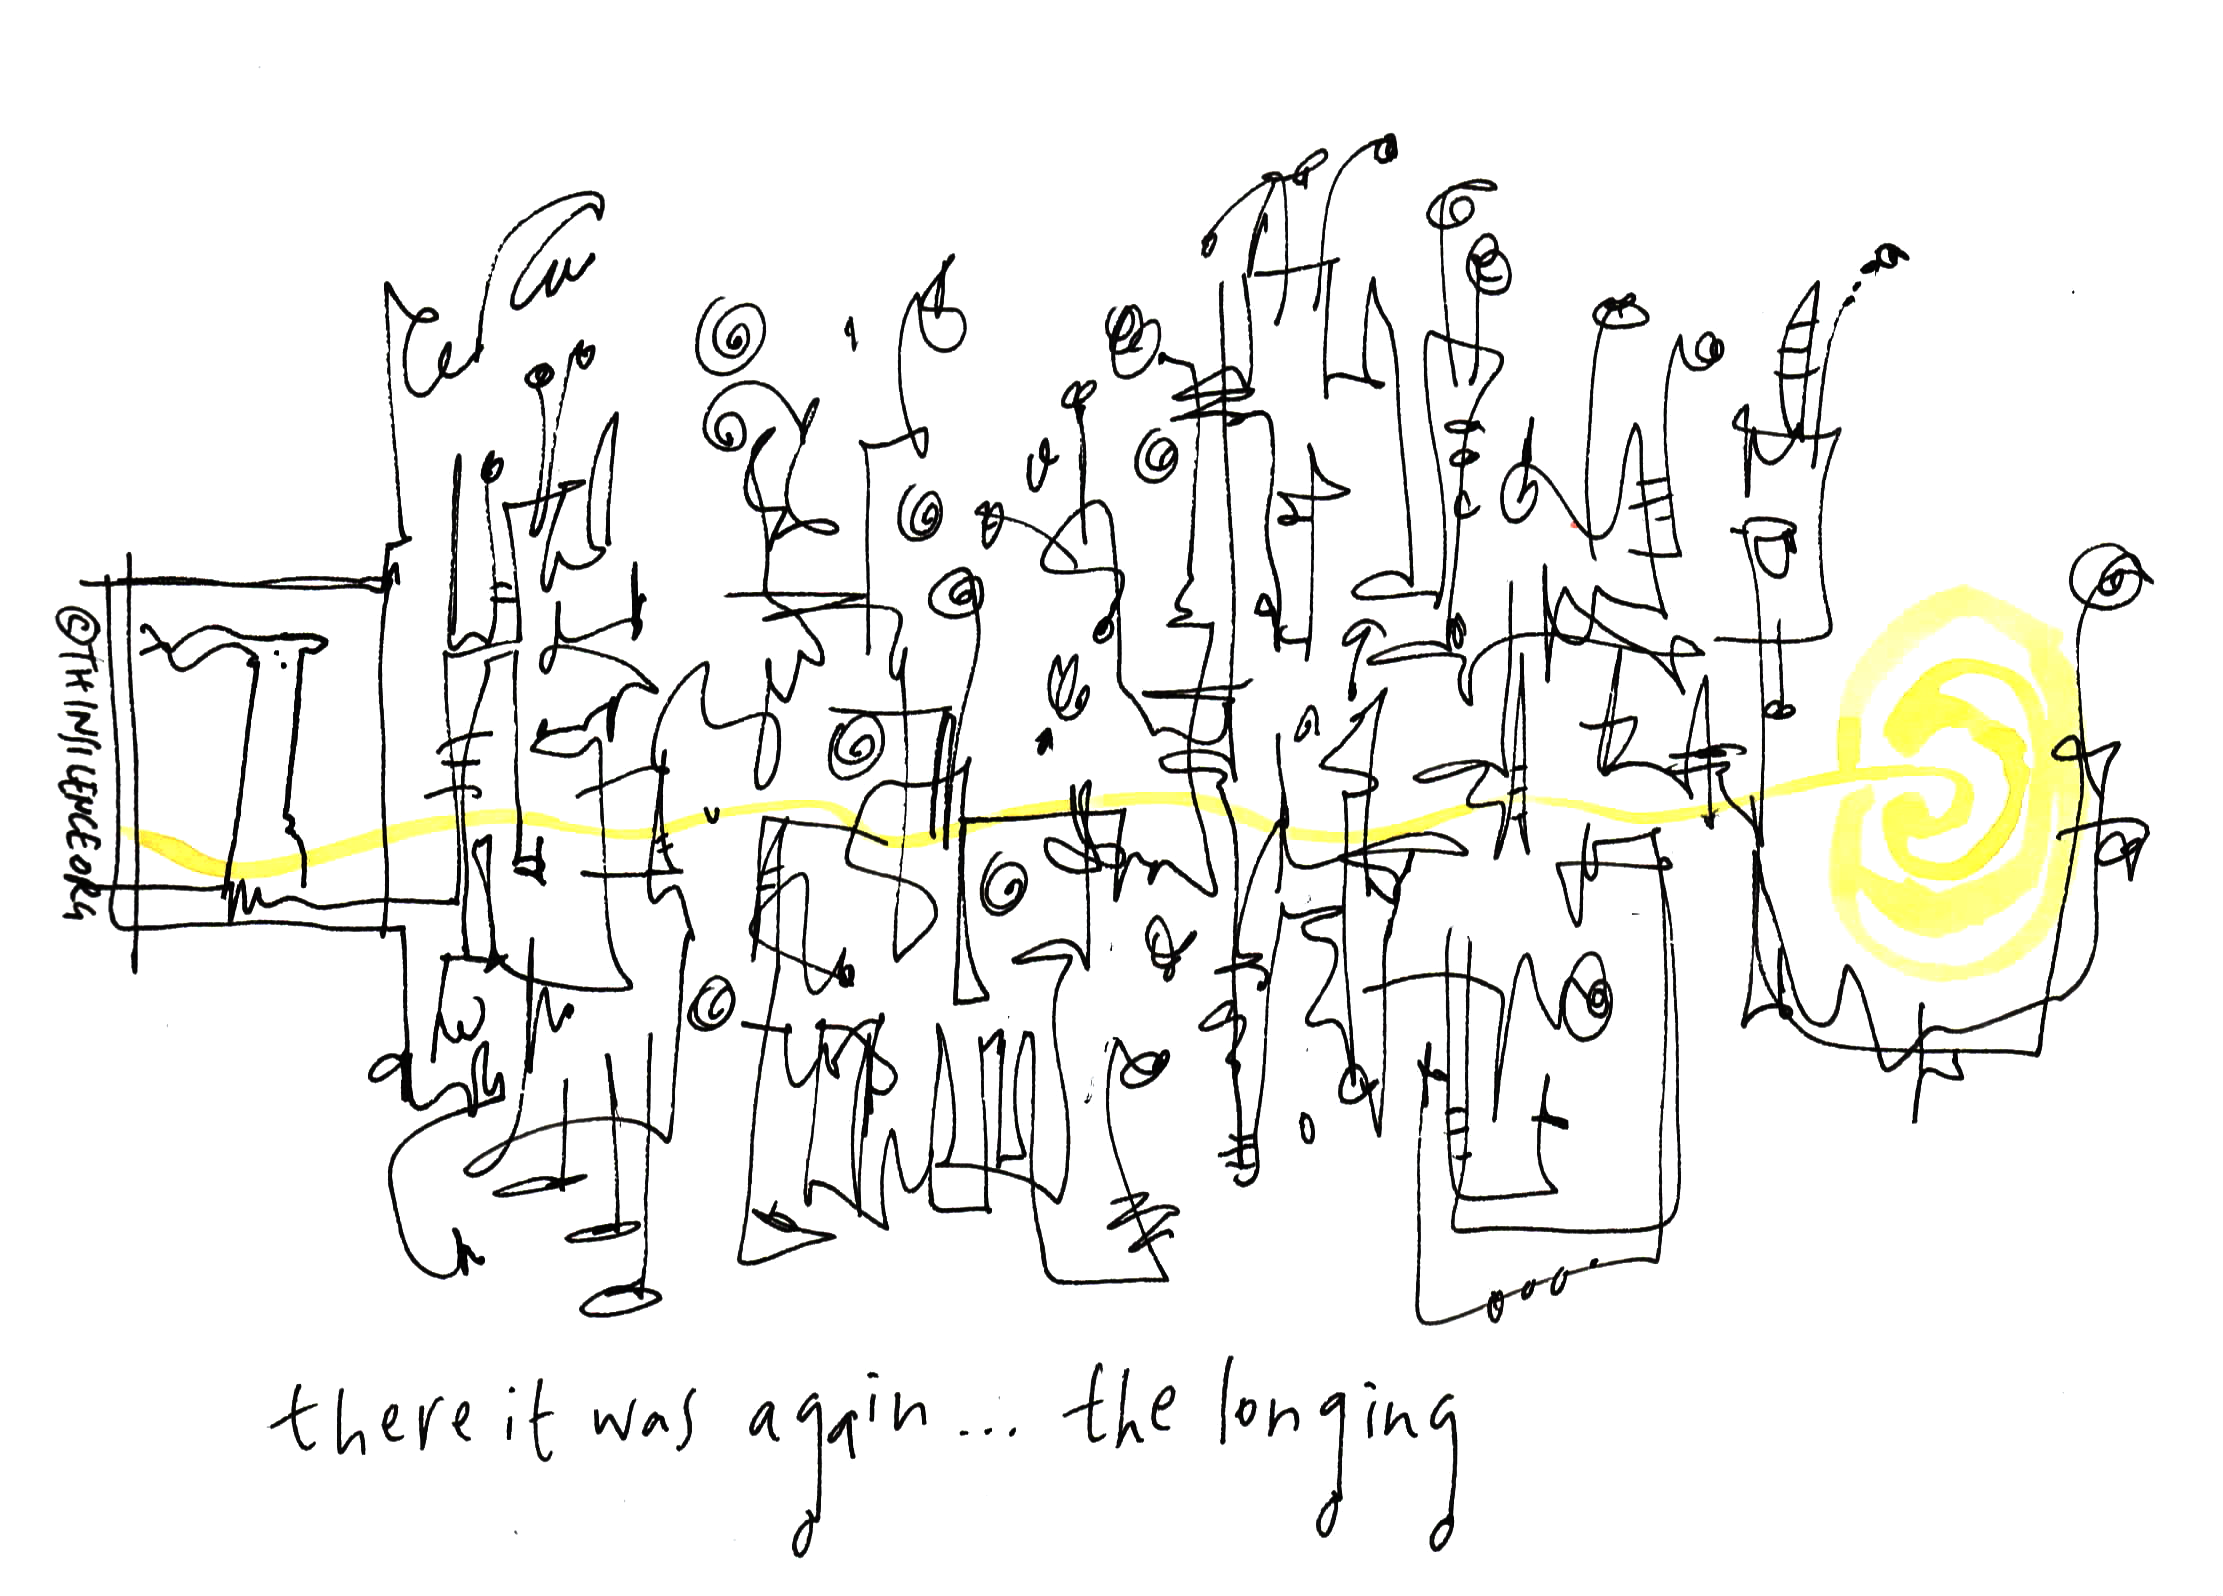 ©THINSILENCEORG
there it was again... the longing